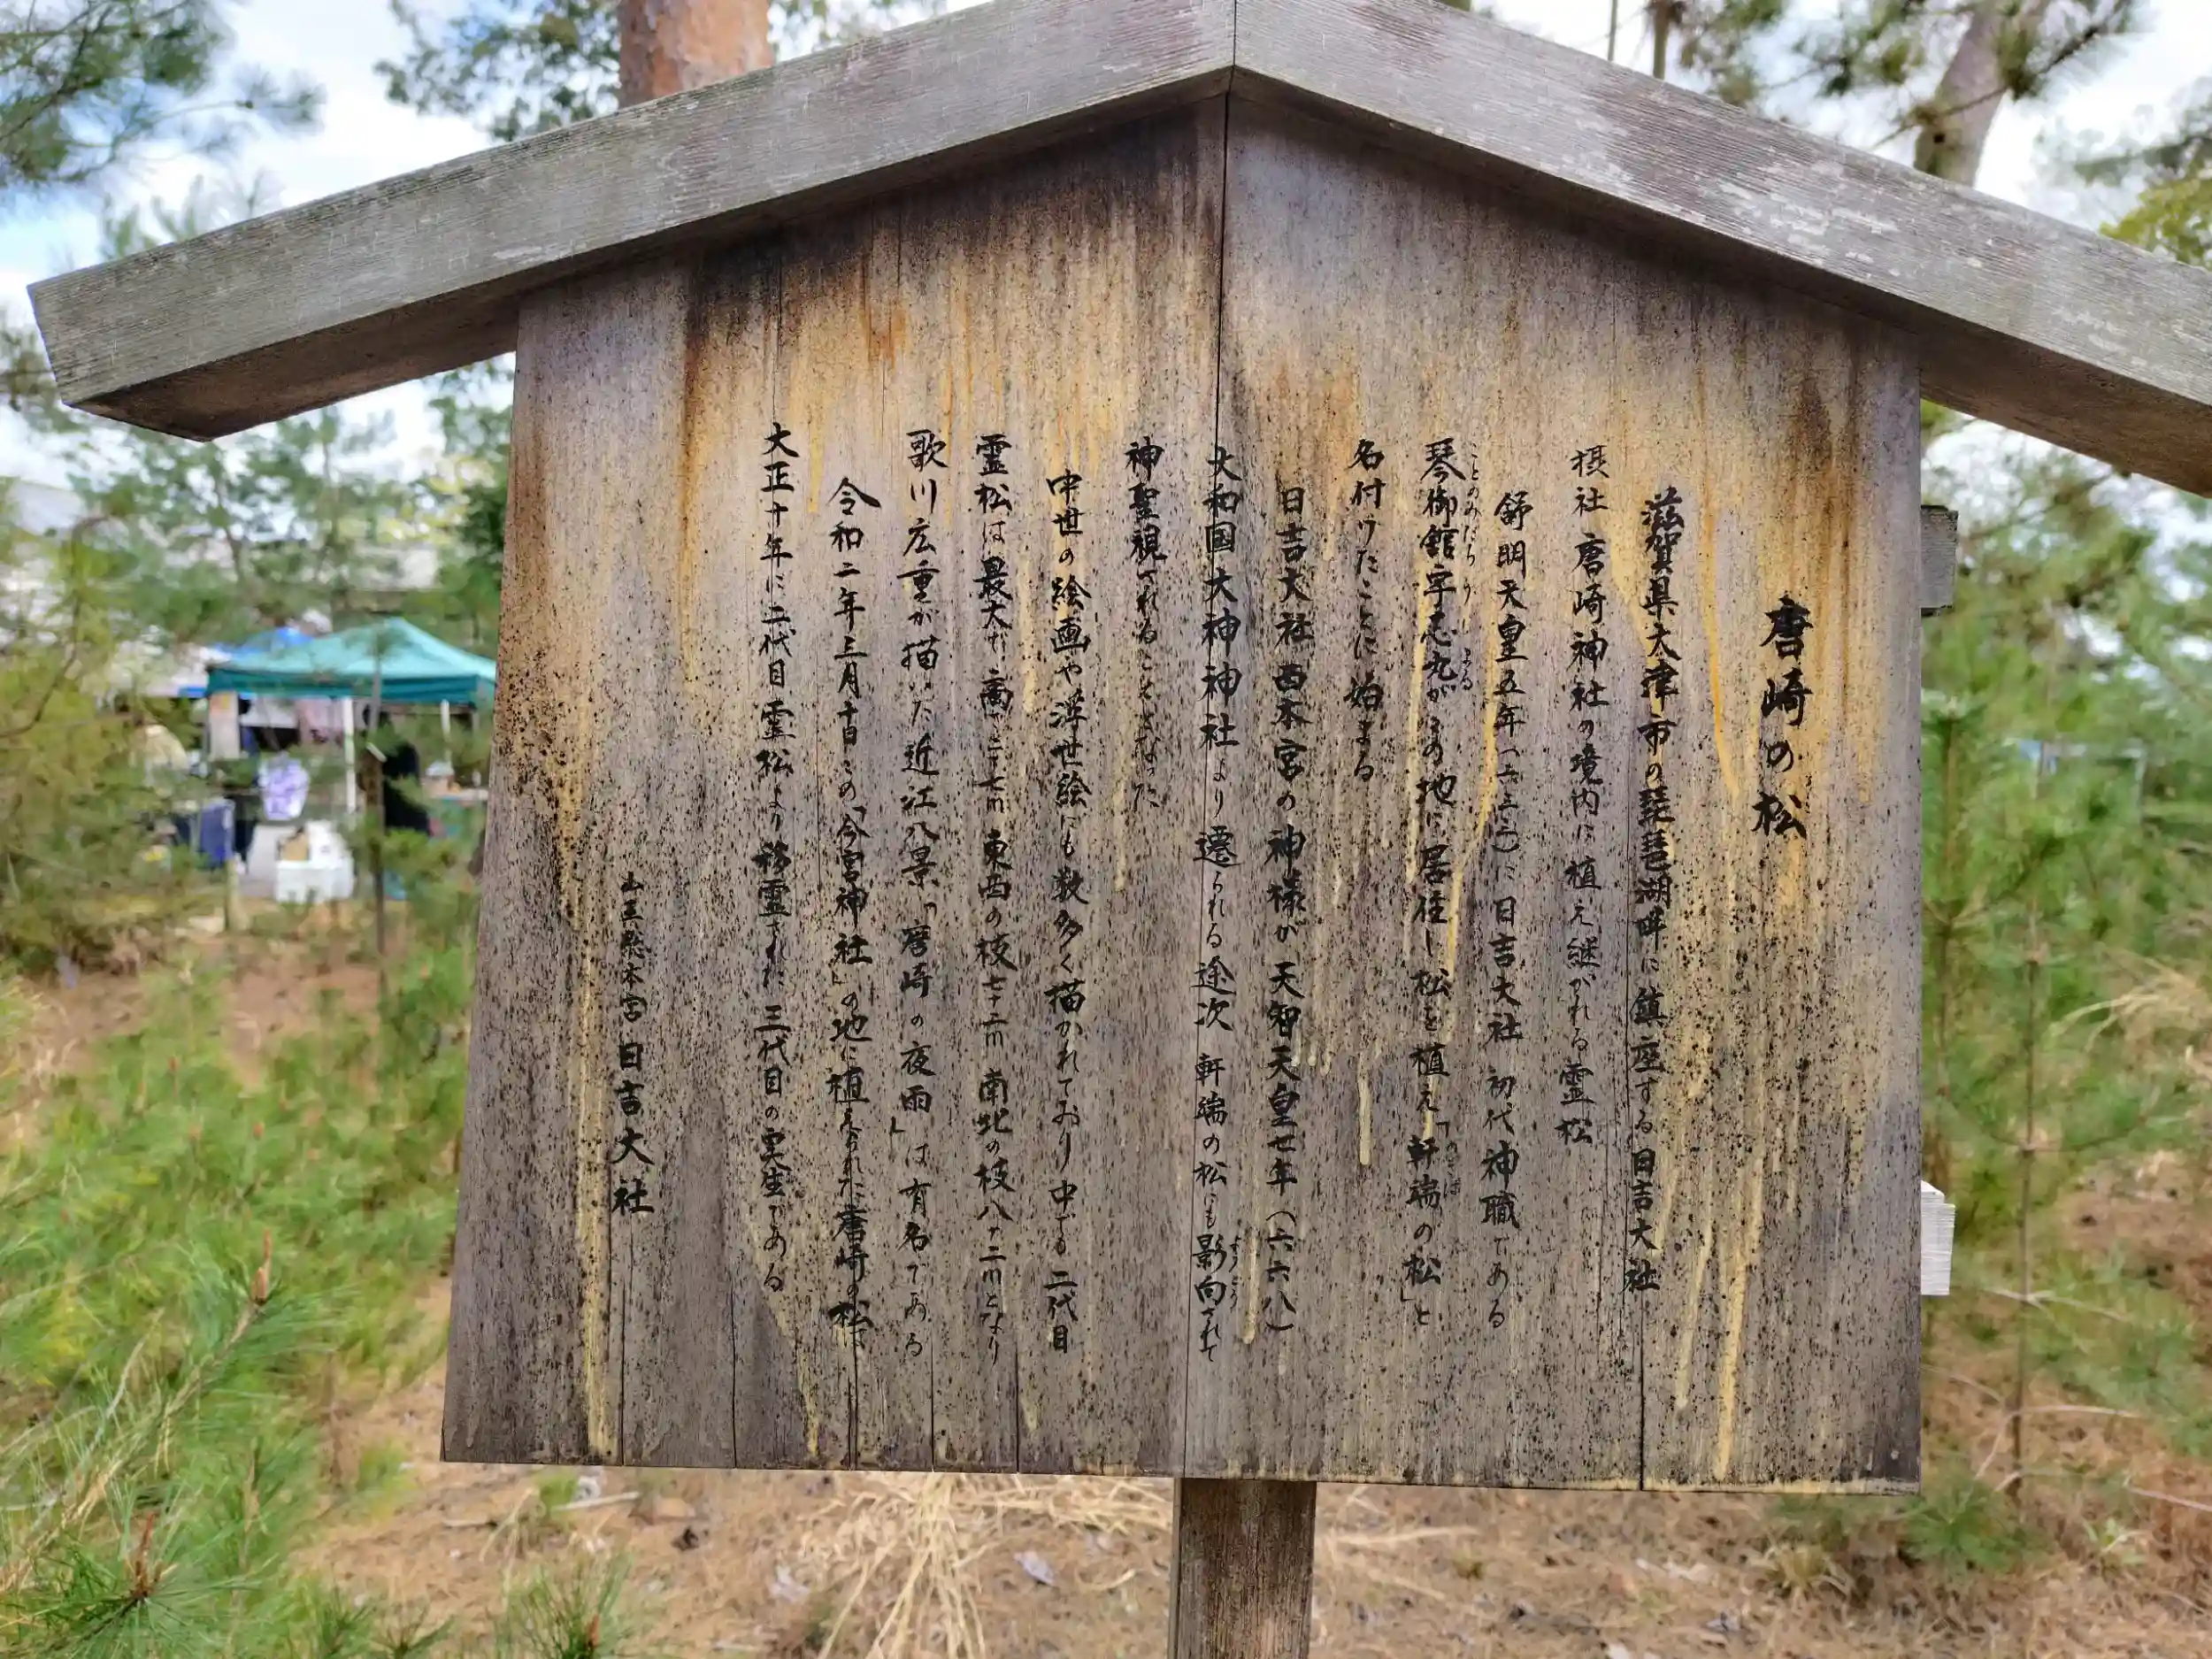 唐崎の松
滋賀県大津市の琵琶湖畔に鎮座する日吉大社
摂社 唐崎神社の境内に植え継がれる霊松
舒明天皇五年(六三三)に日吉大社 初代神職である
琴御館宇志丸がこの地に居住し松を植え「軒端の松」と
名付けたことに始まる
日吉大社西本宮の神様が天智天皇七年(六六八)
大和国大神神社より遷られる途次 軒端の松にも影向されて
神聖視されることとなった
中世の絵画や浮世絵にも数多く描かれており中でも二代目
霊松は最大で高さ二十七m 東西の枝七十二m 南北の枝八十二mとなり
歌川広重が描いた近江八景「唐崎の夜雨」は有名である
令和二年三月十日この「今宮神社」の地に植えられた唐崎の松は
大正十年に二代目霊松より移霊された三代目の実生である
山王総本宮 日吉大社